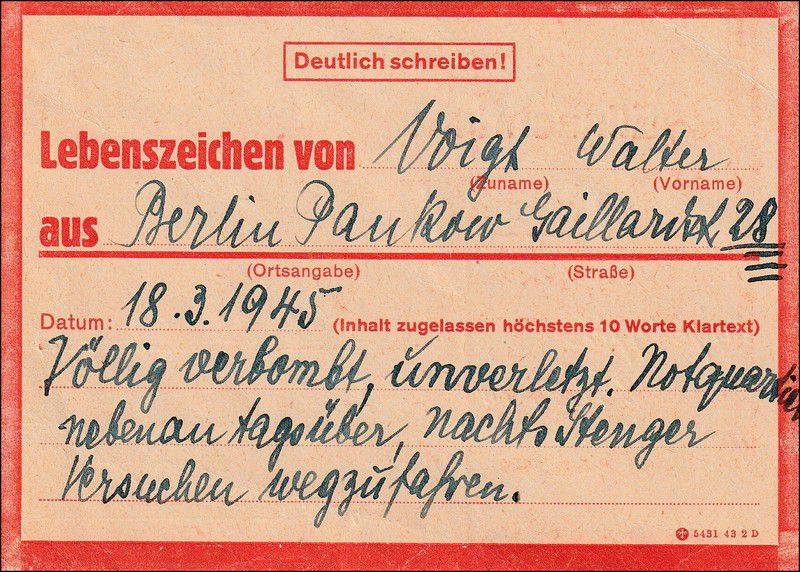 Deutlich schreiben!
Lebenszeichen von Voigt Walter
(Zuname) (Vorname)
aus Berlin Pankow Gaillardstr 28
(Ortsangabe) (Straße)
Datum: 18.3.1945 (Inhalt zugelassen höchstens 10 Worte Klartext)
Völlig verbombt, unverletzt. Notquartier
nebenan tagsüber, nachts Stenger
Versuchen wegzufahren.
5431 43 2 D